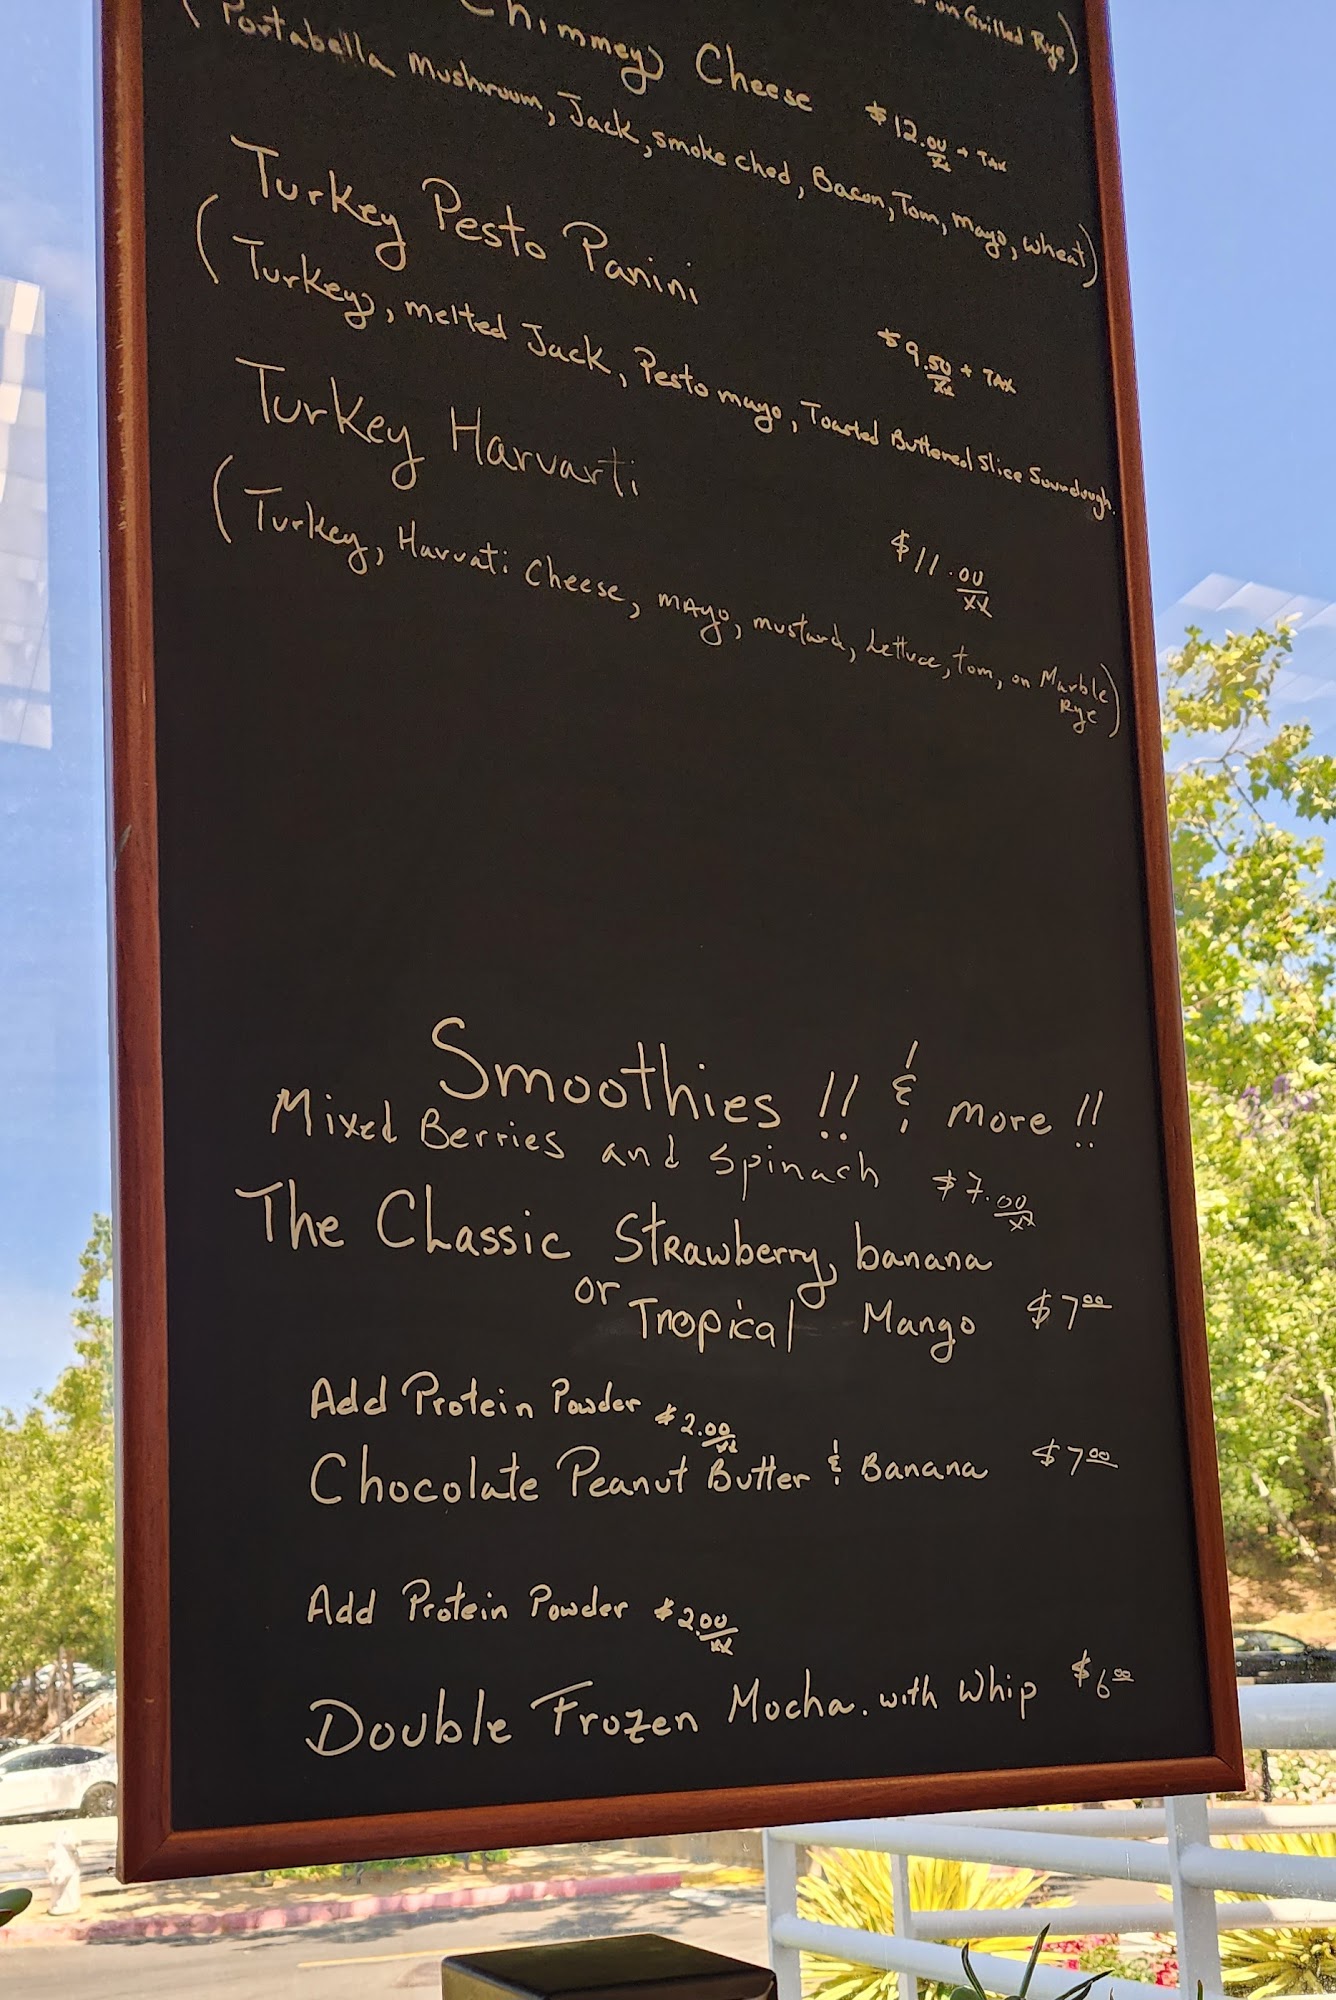 on Grilled Rye)
Chimmey Cheese $12.00/xx + TAX
(Portabella Mushroom, Jack, smoke ched, Bacon, Tom, Mayo, wheat)
Turkey Pesto Panini $9.50/xx + TAX
(Turkey, melted Jack, Pesto mayo, Toasted Buttered Slice Sourdough.
Turkey Harvarti $11.00/xx
(Turkey, Harvati Cheese, mAyo, mustard, Lettuce, tom, on Marble
Rye)
Smoothies !! & more !!
Mixed Berries and Spinach $7.00/xx
The Classic Strawberry, banana
or Tropical Mango $7 00
Add Protein Powder $2.00/xx
Chocolate Peanut Butter & Banana $7 00
Add Protein Powder $2.00/xx
Double Frozen Mocha. with Whip $6 00